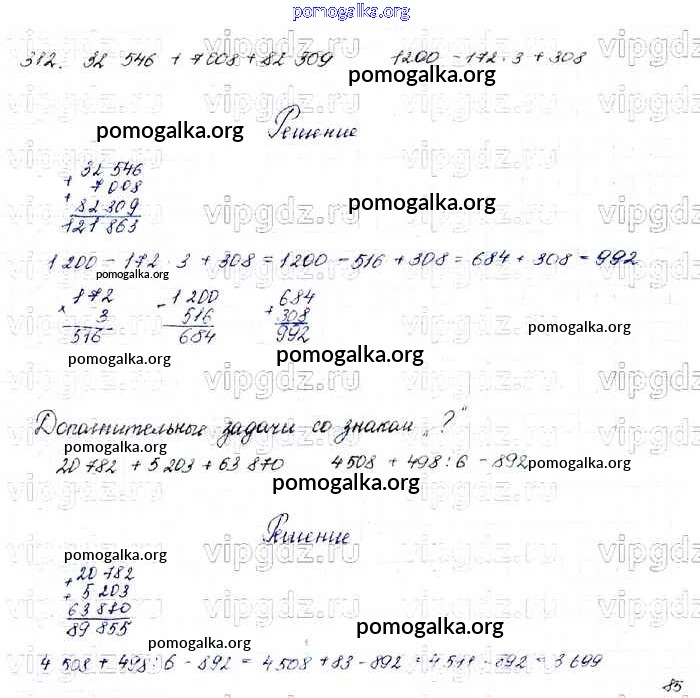 pomogalka.org
312. 32 546 + 7 008 + 82 309 1200 - 172 · 3 + 308
pomogalka.org
pomogalka.org Решение
32 546
+ 7 008
+ 82 309
121 863
pomogalka.org
1 200 - 172 · 3 + 308 = 1200 - 516 + 308 = 684 + 308 = 992
pomogalka.org
172 - 1 200 684
× 3 516 + 308
516 684 992
pomogalka.org
pomogalka.org pomogalka.org
vipgdz.ru vipgdz.ru vipgdz.ru
Дополнительные задачи со знаком „?"
pomogalka.org
20 782 + 5 203 + 63 870 4 508 + 498 : 6 - 892
pomogalka.org
pomogalka.org
Решение
pomogalka.org
20 782
+ 5 203
+ 63 870
89 855
pomogalka.org
pomogalka.org
4 508 + 498 : 6 - 892 = 4 508 + 83 - 892 = 4 511 - 892 = 3 699
85